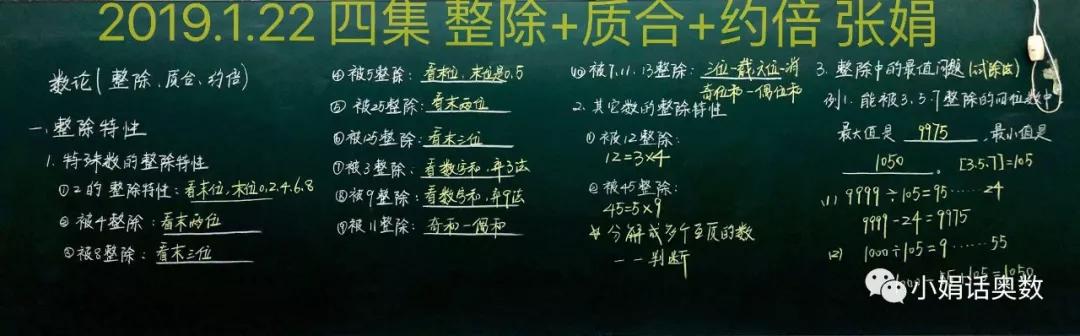 2019.1.22 四集 整除+质合+约倍 张娟
数论(整除、质合、约倍)
一、整除特性
1. 特殊数的整除特性
①2的整除特性:看末位,末位0.2.4.6.8
②被4整除:看末两位
③被8整除:看末三位
④被5整除:看末位,末位是0.5
⑤被25整除:看末两位
⑥被125整除:看末三位
⑦被3整除:看数字和,弃3法
⑧被9整除:看数字和,弃9法
⑨被11整除:奇和-偶和
⑩被7.11.13整除:三位一截,六位一消
奇位和-偶位和
2. 其它数的整除特性
①被12整除:
12=3×4
②被45整除:
45=5×9
※分解成多个互质的数
一一判断
3. 整除中的最值问题(试除法)
例1. 能被3.5.7整除的四位数中,
最大值是 9975 ,最小值是
1050 . [3.5.7]=105
(1) 9999÷105=95……24
9999-24=9975
(2) 1000÷105=9……55
1000-55+105=1050
小娟话奥数